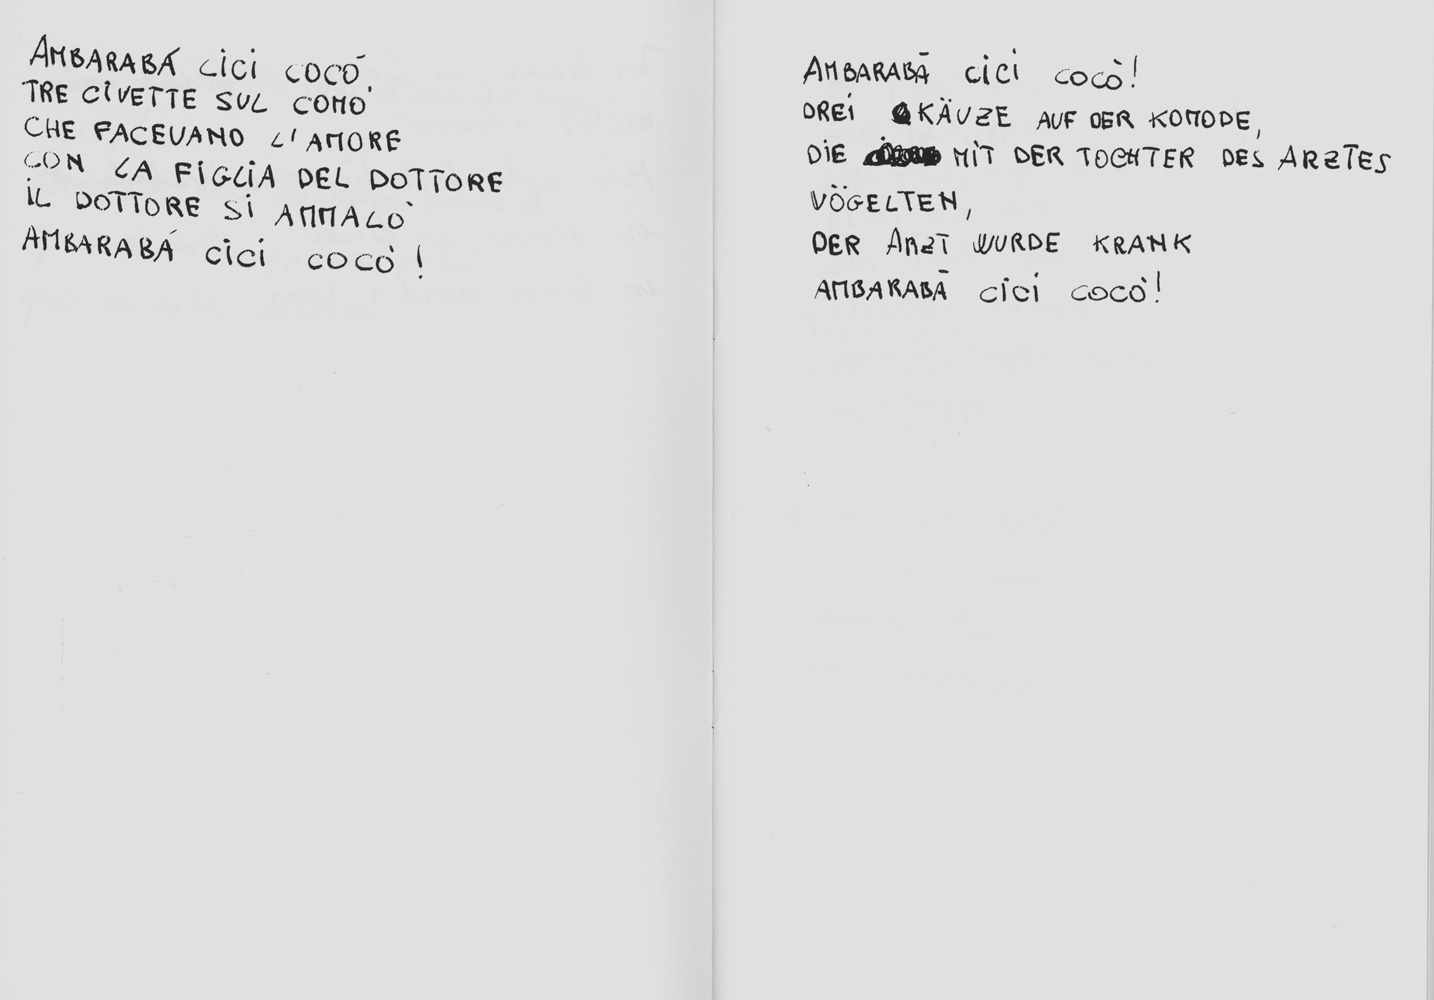 AMBARABÁ CICI COCÓ
TRE CIVETTE SUL COMÓ
CHE FACEVANO L'AMORE
CON LA FIGLIA DEL DOTTORE
IL DOTTORE SI AMMALÒ
AMBARABÁ CICI COCÒ!
AMBARABĀ CICI COCÒ!
DREI KÄUZE AUF DER KOMODE,
DIE MIT DER TOCHTER DES ARZTES
VÖGELTEN,
DER ARZT WURDE KRANK
AMBARABĀ CICI COCÒ!